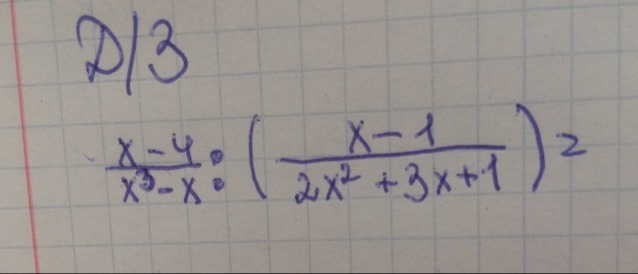 Д/З
x-4/x³-x : (x-1/2x²+3x+1) =